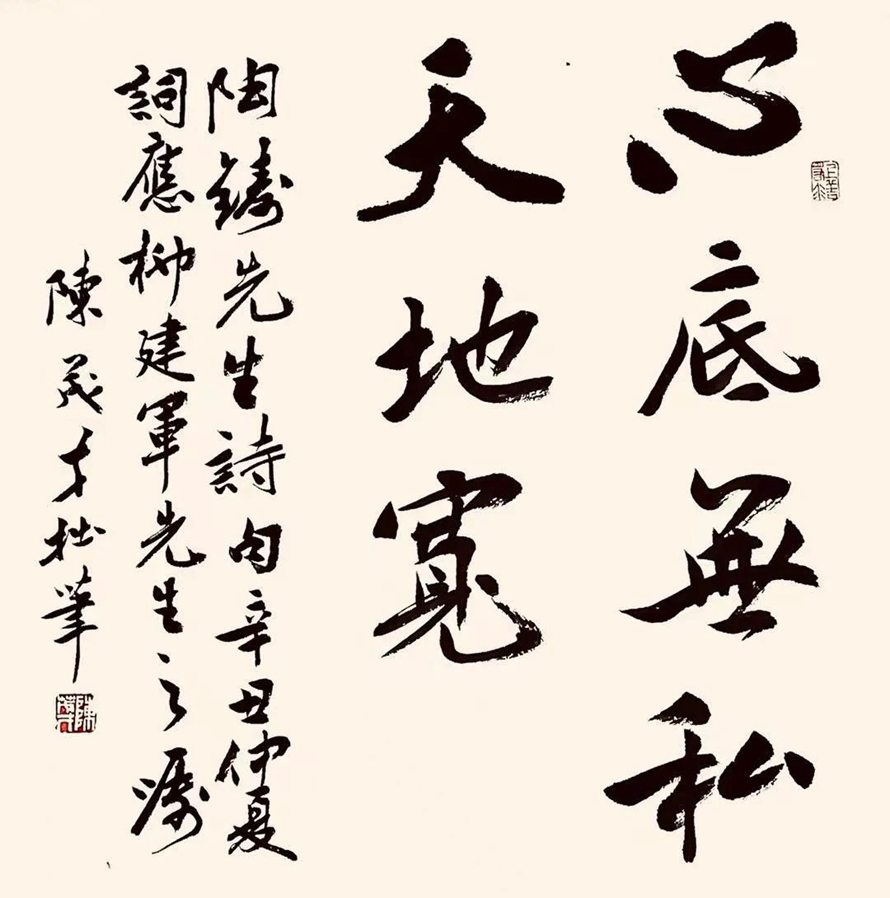 心底無私
天地寬
陶鑄先生詩句辛丑仲夏
詞應柳建軍先生之瀿
陳茂才拙筆